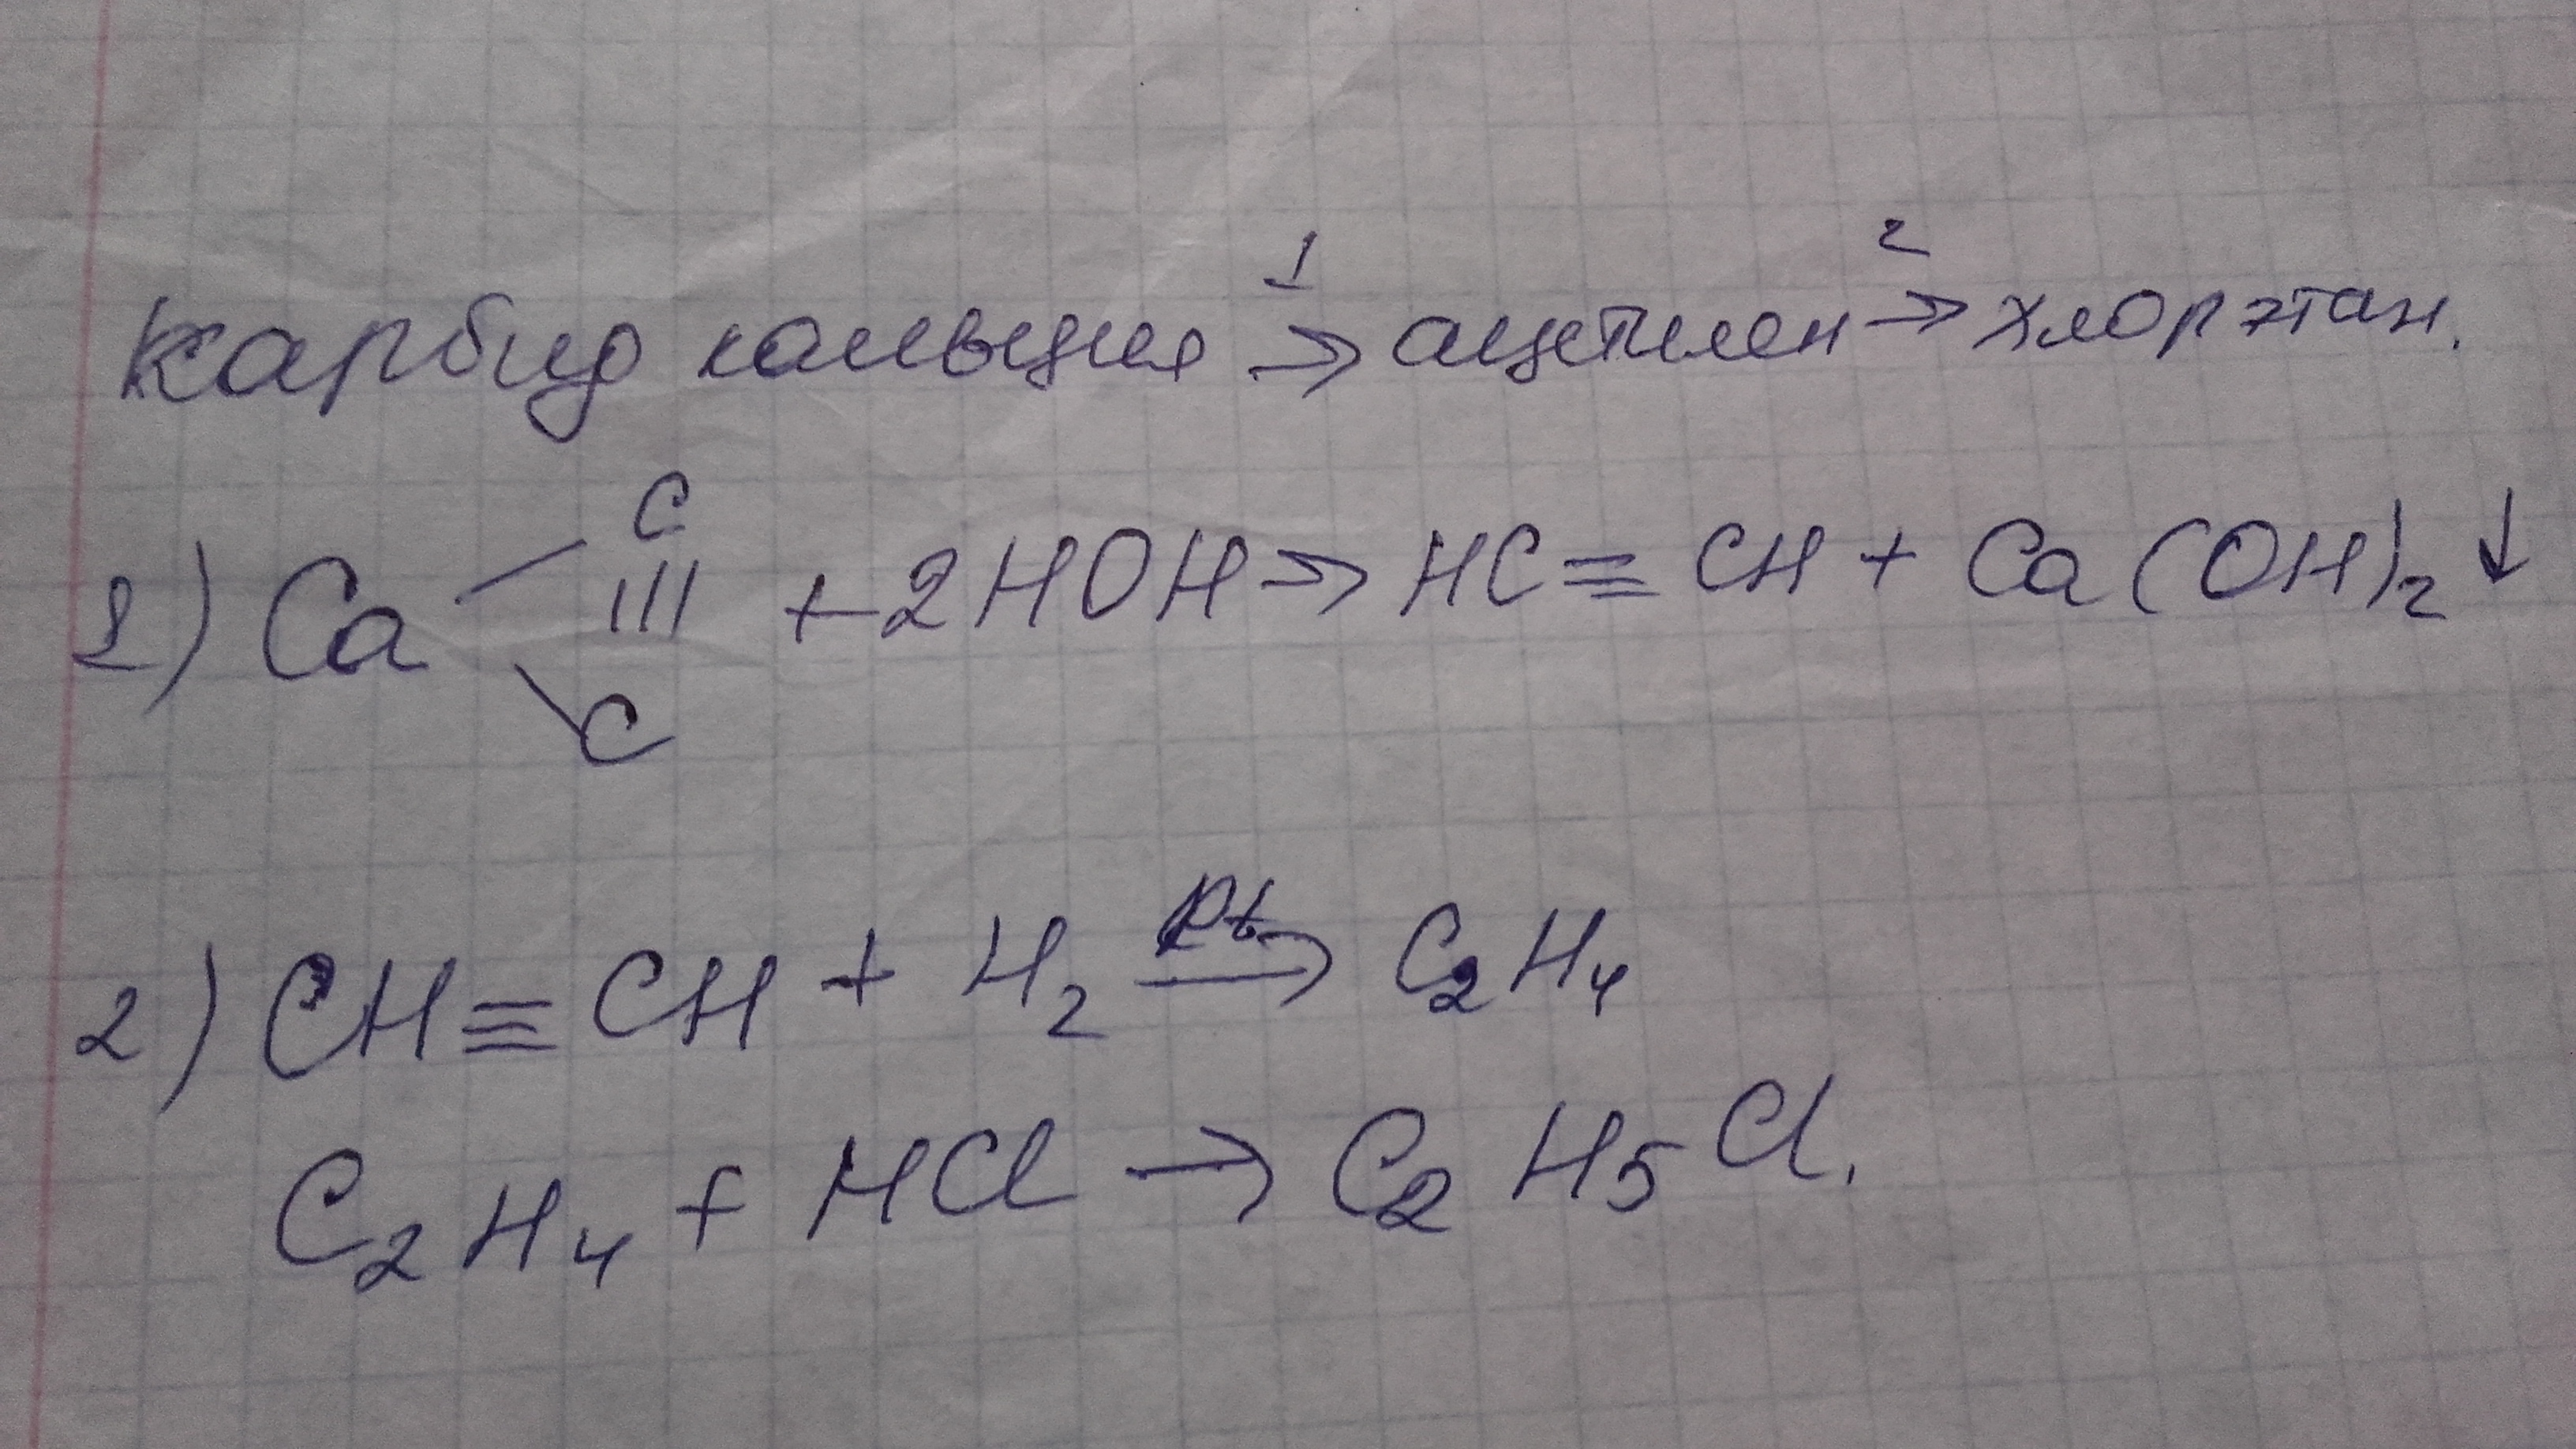 Карбид кальция 1→ ацетилен 2→ хлорэтан.
1) Ca C ≡ C + 2HOH → HC ≡ CH + Ca(OH)₂ ↓
2) CH ≡ CH + H₂ Pt→ C₂H₄
C₂H₄ + HCl → C₂H₅Cl.